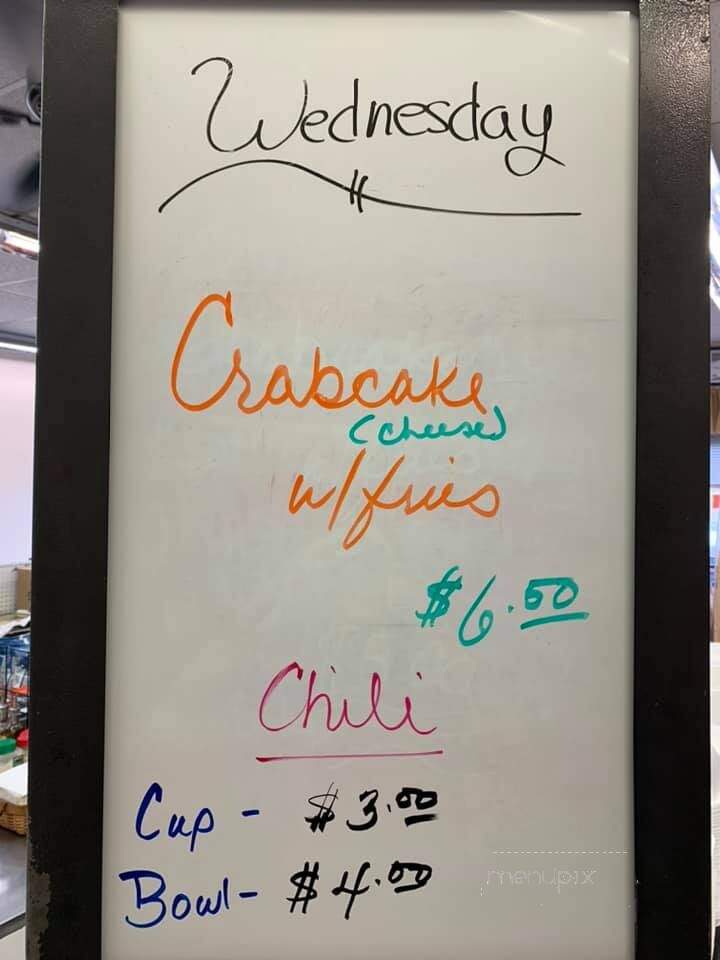 Wednesday
Crabcake
(cheese)
w/fries
$6.50
Chili
Cup - $3.00
Bowl- $4.00
menupix